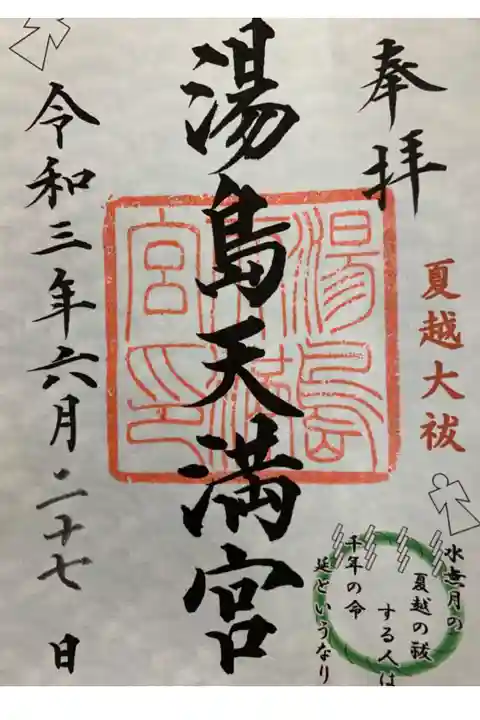 奉拝
夏越大祓
水無月の
夏越の祓
する人は
千年の命
延というなり
湯島天満宮
湯島天満宮印
令和三年六月二十七日